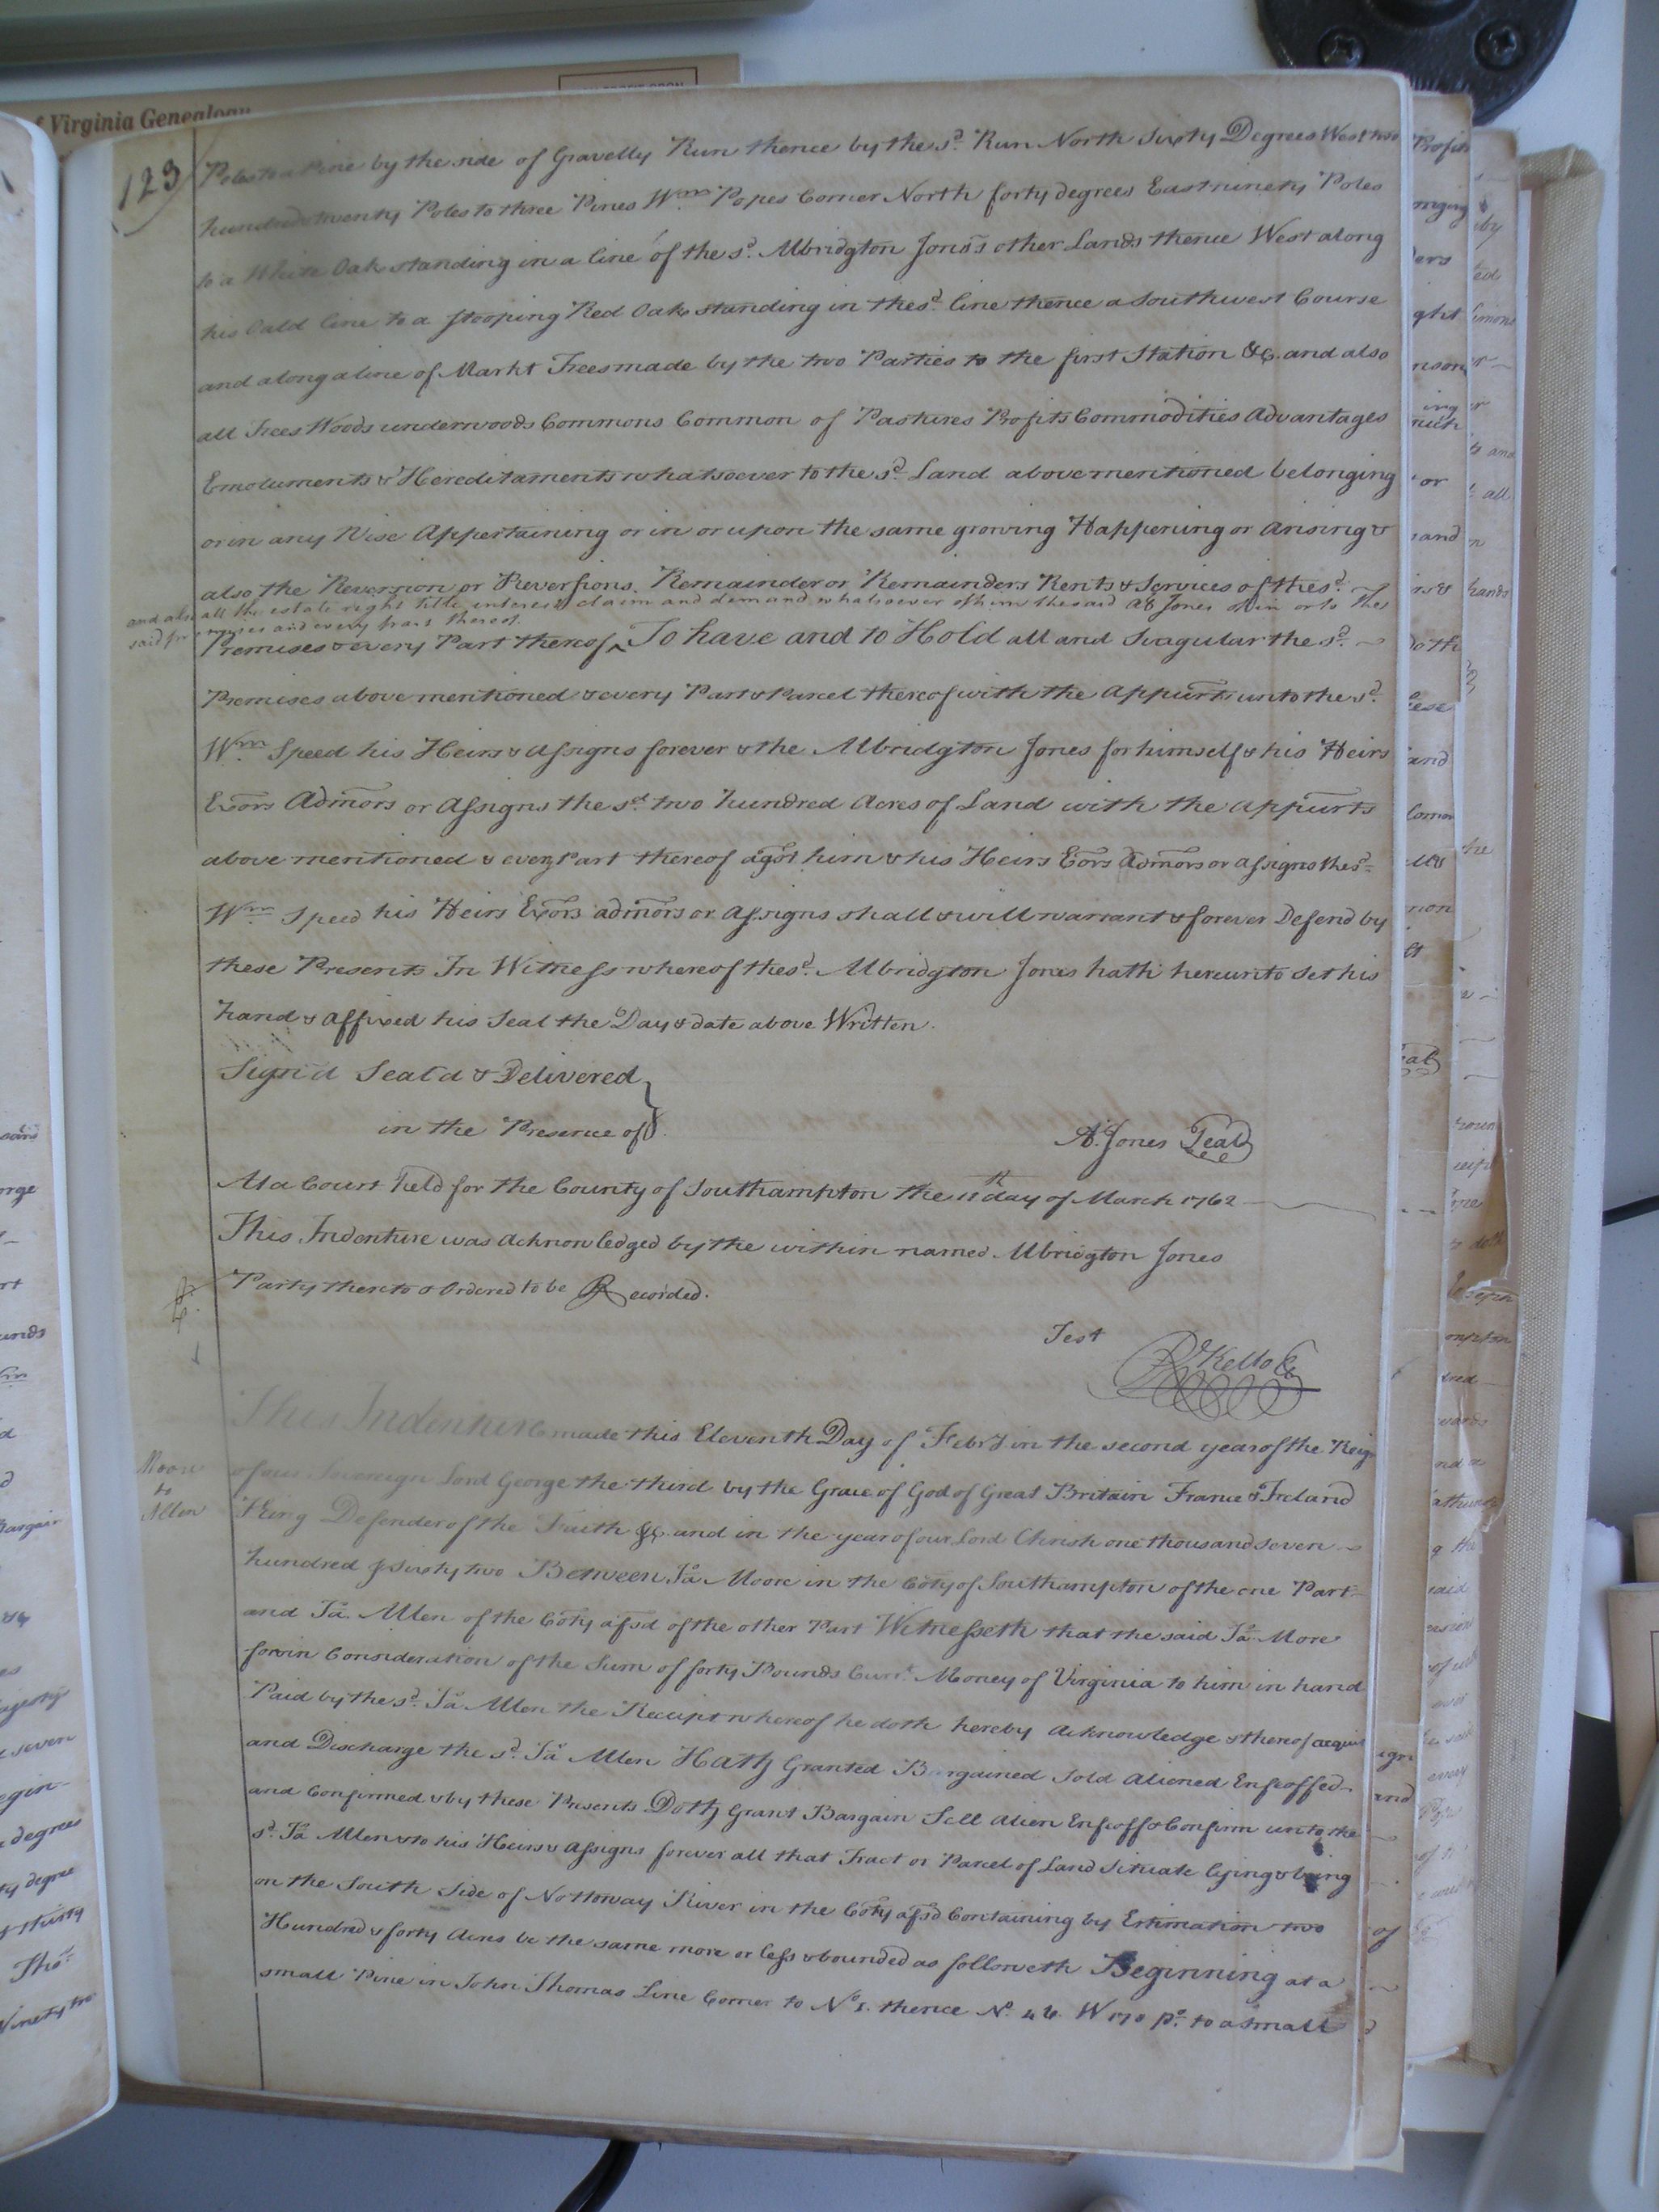 f Virginia Genealogy
123
Poles to a Pine by the side of Gravelly Run thence by the sd. Run North Sixty Degrees West two
hundred twenty Poles to three Pines Wm. Popes Corner North forty degrees East ninety Poles
to a White Oak standing in a line of the sd. Albridgton Jones other Lands thence West along
his Oald line to a stooping Red Oak standing in the sd. line thence a Southwest Course
and along a line of Markt Trees made by the two Parties to the first Station &c. and also
all Trees Woods underwoods Commons Common of Pastures Profits Commodities Advantages
Emoluments & Hereditaments whatsoever to the sd. Land above mentioned belonging
or in any Wise Appertaining or in or upon the same growing Happening or arising &
also the Reversion or Reversions Remainder or Remainders Rents & Services of the sd.
and also all the estate right title interest claim and demand whatsoever of him the said Ab Jones of in or to the
said premises and every part thereof.
Premises & every Part thereof ^ To have and to Hold all and Singular the sd.
Premises above mentioned & every Part & Parcel thereof with the appurts unto the sd.
Wm. Speed his Heirs & assigns forever & the Albridgton Jones for himself & his Heirs
Exors Admors or Assigns the sd. two hundred Acres of Land with the appurts
above mentioned & every Part thereof agst him & his Heirs Exors Admors or assigns the sd.
Wm. Speed his Heirs Exors admors or assigns shall & will warrant & forever Defend by
these Presents In Witness whereof the sd. Albridgton Jones hath hereunto set his
hand & affixed his Seal the Day & date above Written.
Sign'd Seal'd & Delivered
in the Presence of
A. Jones Seal
At a Court held for the County of Southampton the 11th day of March 1762
This Indenture was acknowledged by the within named Albridgton Jones
Party thereto & Ordered to be Recorded.
Test
Rd. Kello C
Moore
to
Allen
This Indenture made this Eleventh Day of Febry in the second year of the Reig
of our Sovereign Lord George the third by the Grace of God of Great Britain France & Ireland
King Defender of the Faith &c. and in the year of our Lord Christ one thousand seven
hundred & sixty two Between Ja. Moore in the Coty of Southampton of the one Part
and Ja. Allen of the Coty afsd of the other Part Witnesseth that the said Ja. More
for & in Consideration of the Sum of forty Pounds Curt. Money of Virginia to him in hand
Paid by the sd. Ja. Allen the Receipt whereof he doth hereby Acknowledge & thereof acquit
and Discharge the sd. Ja. Allen Hath Granted Bargained Sold Aliened Enfeoffed
and Confirmed & by these Presents Doth Grant Bargain Sell Alien Enfeoff & Confirm unto the
sd. Ja. Allen & to his Heirs & Assigns forever all that Tract or Parcel of Land Situate lying & being
on the South Side of Nottoway River in the Coty afsd Containing by Estimation two
Hundred & forty Acres be the same more or less & bounded as followeth Beginning at a
small Pine in John Thomas Line Corner to No. 1. thence No. 46 W 170 po. to a small